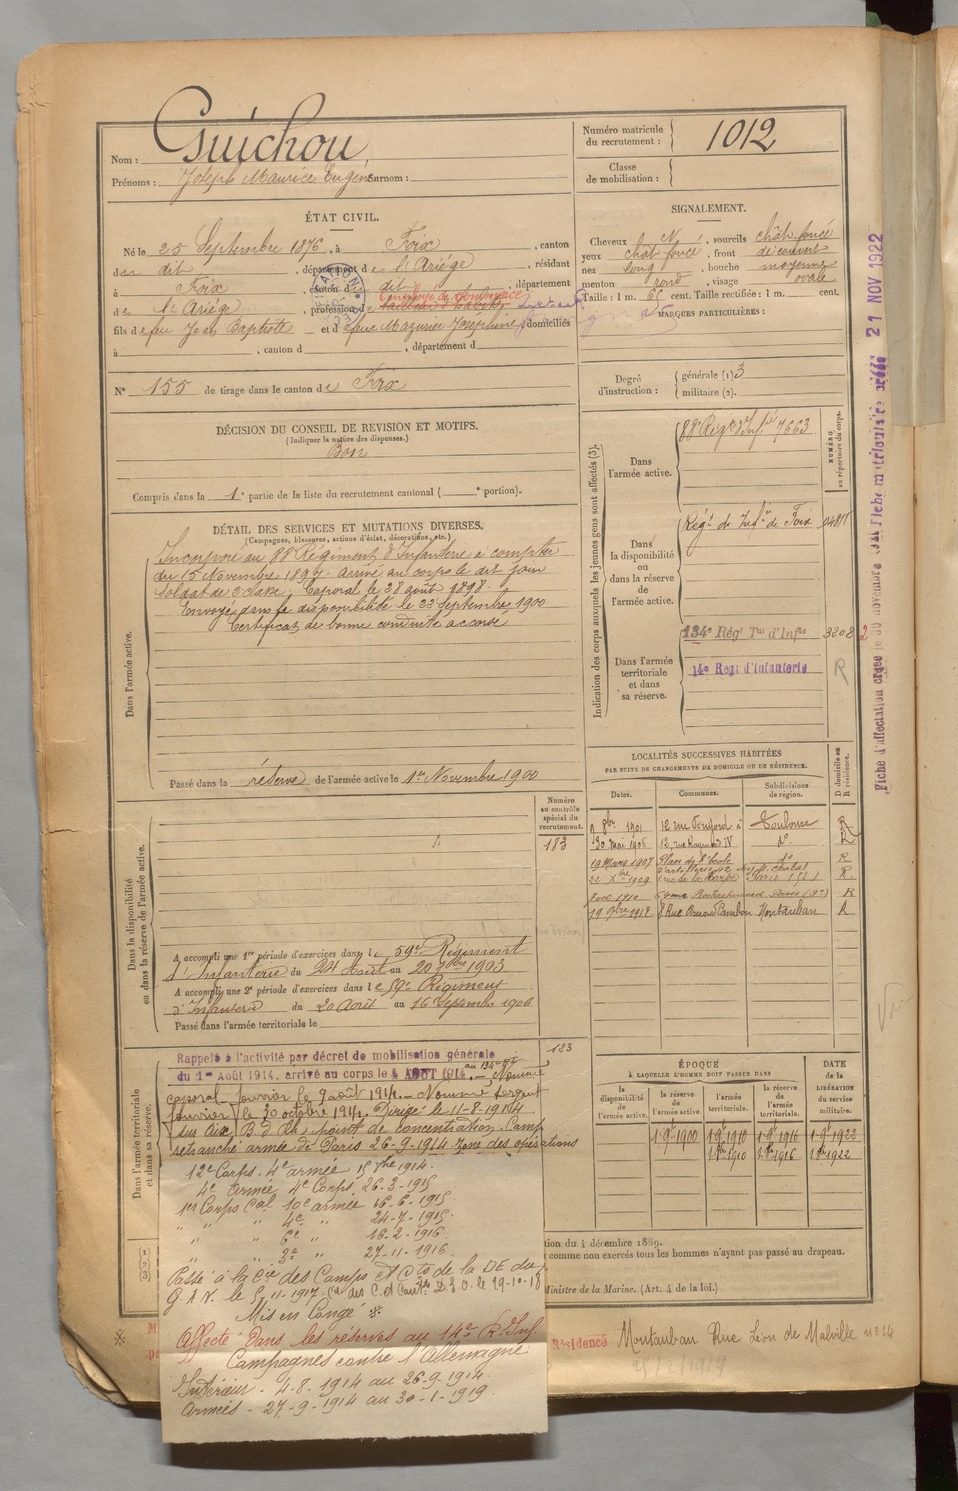 Nom : Guichou,
Prénoms : Joseph Maurice Eugène Surnom :
Numéro matricule du recrutement : 1012
Classe de mobilisation :
ÉTAT CIVIL.
Né le 25 Septembre 1876, à Foix, canton
du dit, département de l'Ariége, résidant
à Foix, canton du dit, département
de l'Ariége, profession de
Employé de commerce
fils de feu Jean Baptiste et de feue Mazurier Joséphine, domiciliés
à , canton d , département d
N° 155 de tirage dans le canton de Foix
SIGNALEMENT.
Cheveux N, sourcils chât. foncé
yeux chât foncé, front découvert
nez long, bouche moyenne
menton rond, visage ovale
Taille : 1 m. 61 cent. Taille rectifiée : 1 m. cent.
MARQUES PARTICULIÈRES :
Degré d'instruction : générale (1) 3
militaire (2).
DÉCISION DU CONSEIL DE REVISION ET MOTIFS.
(Indiquer la nature des dispenses.)
Bon
Compris dans la 1e partie de la liste du recrutement cantonal ( e portion).
DÉTAIL DES SERVICES ET MUTATIONS DIVERSES.
(Campagnes, blessures, actions d'éclat, décorations, etc.)
Dans l'armée active.
Incorporé au 88e Régiment d'Infanterie à compter
du 15 Novembre 1897. Arrivé au corps le dit jour
soldat de 2e classe. Caporal le 28 août 1898.
Envoyé dans la disponibilité le 22 Septembre 1900
Certificat de bonne conduite accordé
Passé dans la réserve de l'armée active le 1er Novembre 1900
Indication des corps auxquels les jeunes gens sont affectés (3).
NUMÉRO au répertoire du corps.
Dans l'armée active.
88e Régt d'Infie 7663
Dans la disponibilité ou dans la réserve de l'armée active.
Régt de Infie de Foix
Dans l'armée territoriale et dans sa réserve.
134e Régt Tal d'Infie 3208 2
14e Régt d'Infanterie R
Fiche d'affectation créée le 30 novembre
21 NOV 1922
LOCALITÉS SUCCESSIVES HABITÉES
PAR SUITE DE CHANGEMENTS DE DOMICILE OU DE RÉSIDENCE.
Dates. Communes. Subdivisions de région. D domicile ou R résidence.
9bre 1901 12 rue à Toulouse R
20 mai 1906 12, rue Raymond IV do R
19 Mars 1907 Place de l'école do R
22 Xbre 1909 Paris R
1910 Rochechouart Paris (9e) R
19 9bre 1912 8 Rue Armand Cambon Montauban R
Dans la disponibilité ou dans la réserve de l'armée active.
Numéro au contrôle spécial du recrutement.
183
A accompli une 1re période d'exercices dans le 59e Régiment
d'Infanterie du 24 Août au 20 7bre 1903
A accompli une 2e période d'exercices dans le 59e Régiment
d'Infanterie du 20 Août au 16 Septembre 1906
Passé dans l'armée territoriale le
Dans l'armée territoriale et dans sa réserve.
123
Rappelé à l'activité par décret de mobilisation générale
du 1er Août 1914, arrivé au corps le 4 AOUT 1914 au 134e RTI. – Nommé
caporal fourrier le 9 août 1914. – Nommé sergent
fourrier le 30 octobre 1914. Dirigé le 11-8-1914
sur Aix B. d Rh point de concentration. Camp
retranché armée de Paris 26-9-1914 zone des opérations
12e Corps. 4e armée 15 1914.
4e Armée 4e Corps. 26-3-1915
1er Corps Cal 10e armée 16-6-1915
" " " 4e " 24-7-1915.
" " " 6e " 16-2-1916.
" " " 3e " 27-11-1916.
Passé à la Cie des Camps et Cts de la DE du
G A N. le 5-11-1917. Cie des C. et Cants D.E.O. le 29-10-18
Mis en Congé
Affecté dans les réserves au 14e R. Inf
Campagnes contre l'Allemagne
Intérieur - 4-8-1914 au 26-9-1914.
Armées - 27-9-1914 au 30-1-1919.
ÉPOQUE
À LAQUELLE L'HOMME DOIT PASSER DANS
DATE de la LIBÉRATION du service militaire.
la disponibilité de l'armée active. la réserve de l'armée active. l'armée territoriale. la réserve de l'armée territoriale.
1-9bre 1900 1-9bre 1910 1-9bre 1916 1-9bre 1922
1-8bre 1910 1-8bre 1916 1-8bre 1922
tion du 4 décembre 1889.
comme non exercés tous les hommes n'ayant pas passé au drapeau.
Ministre de la Marine. (Art. 4 de la loi.)
Résidence Montauban Rue Léon de Malville no 14
25/2/1919